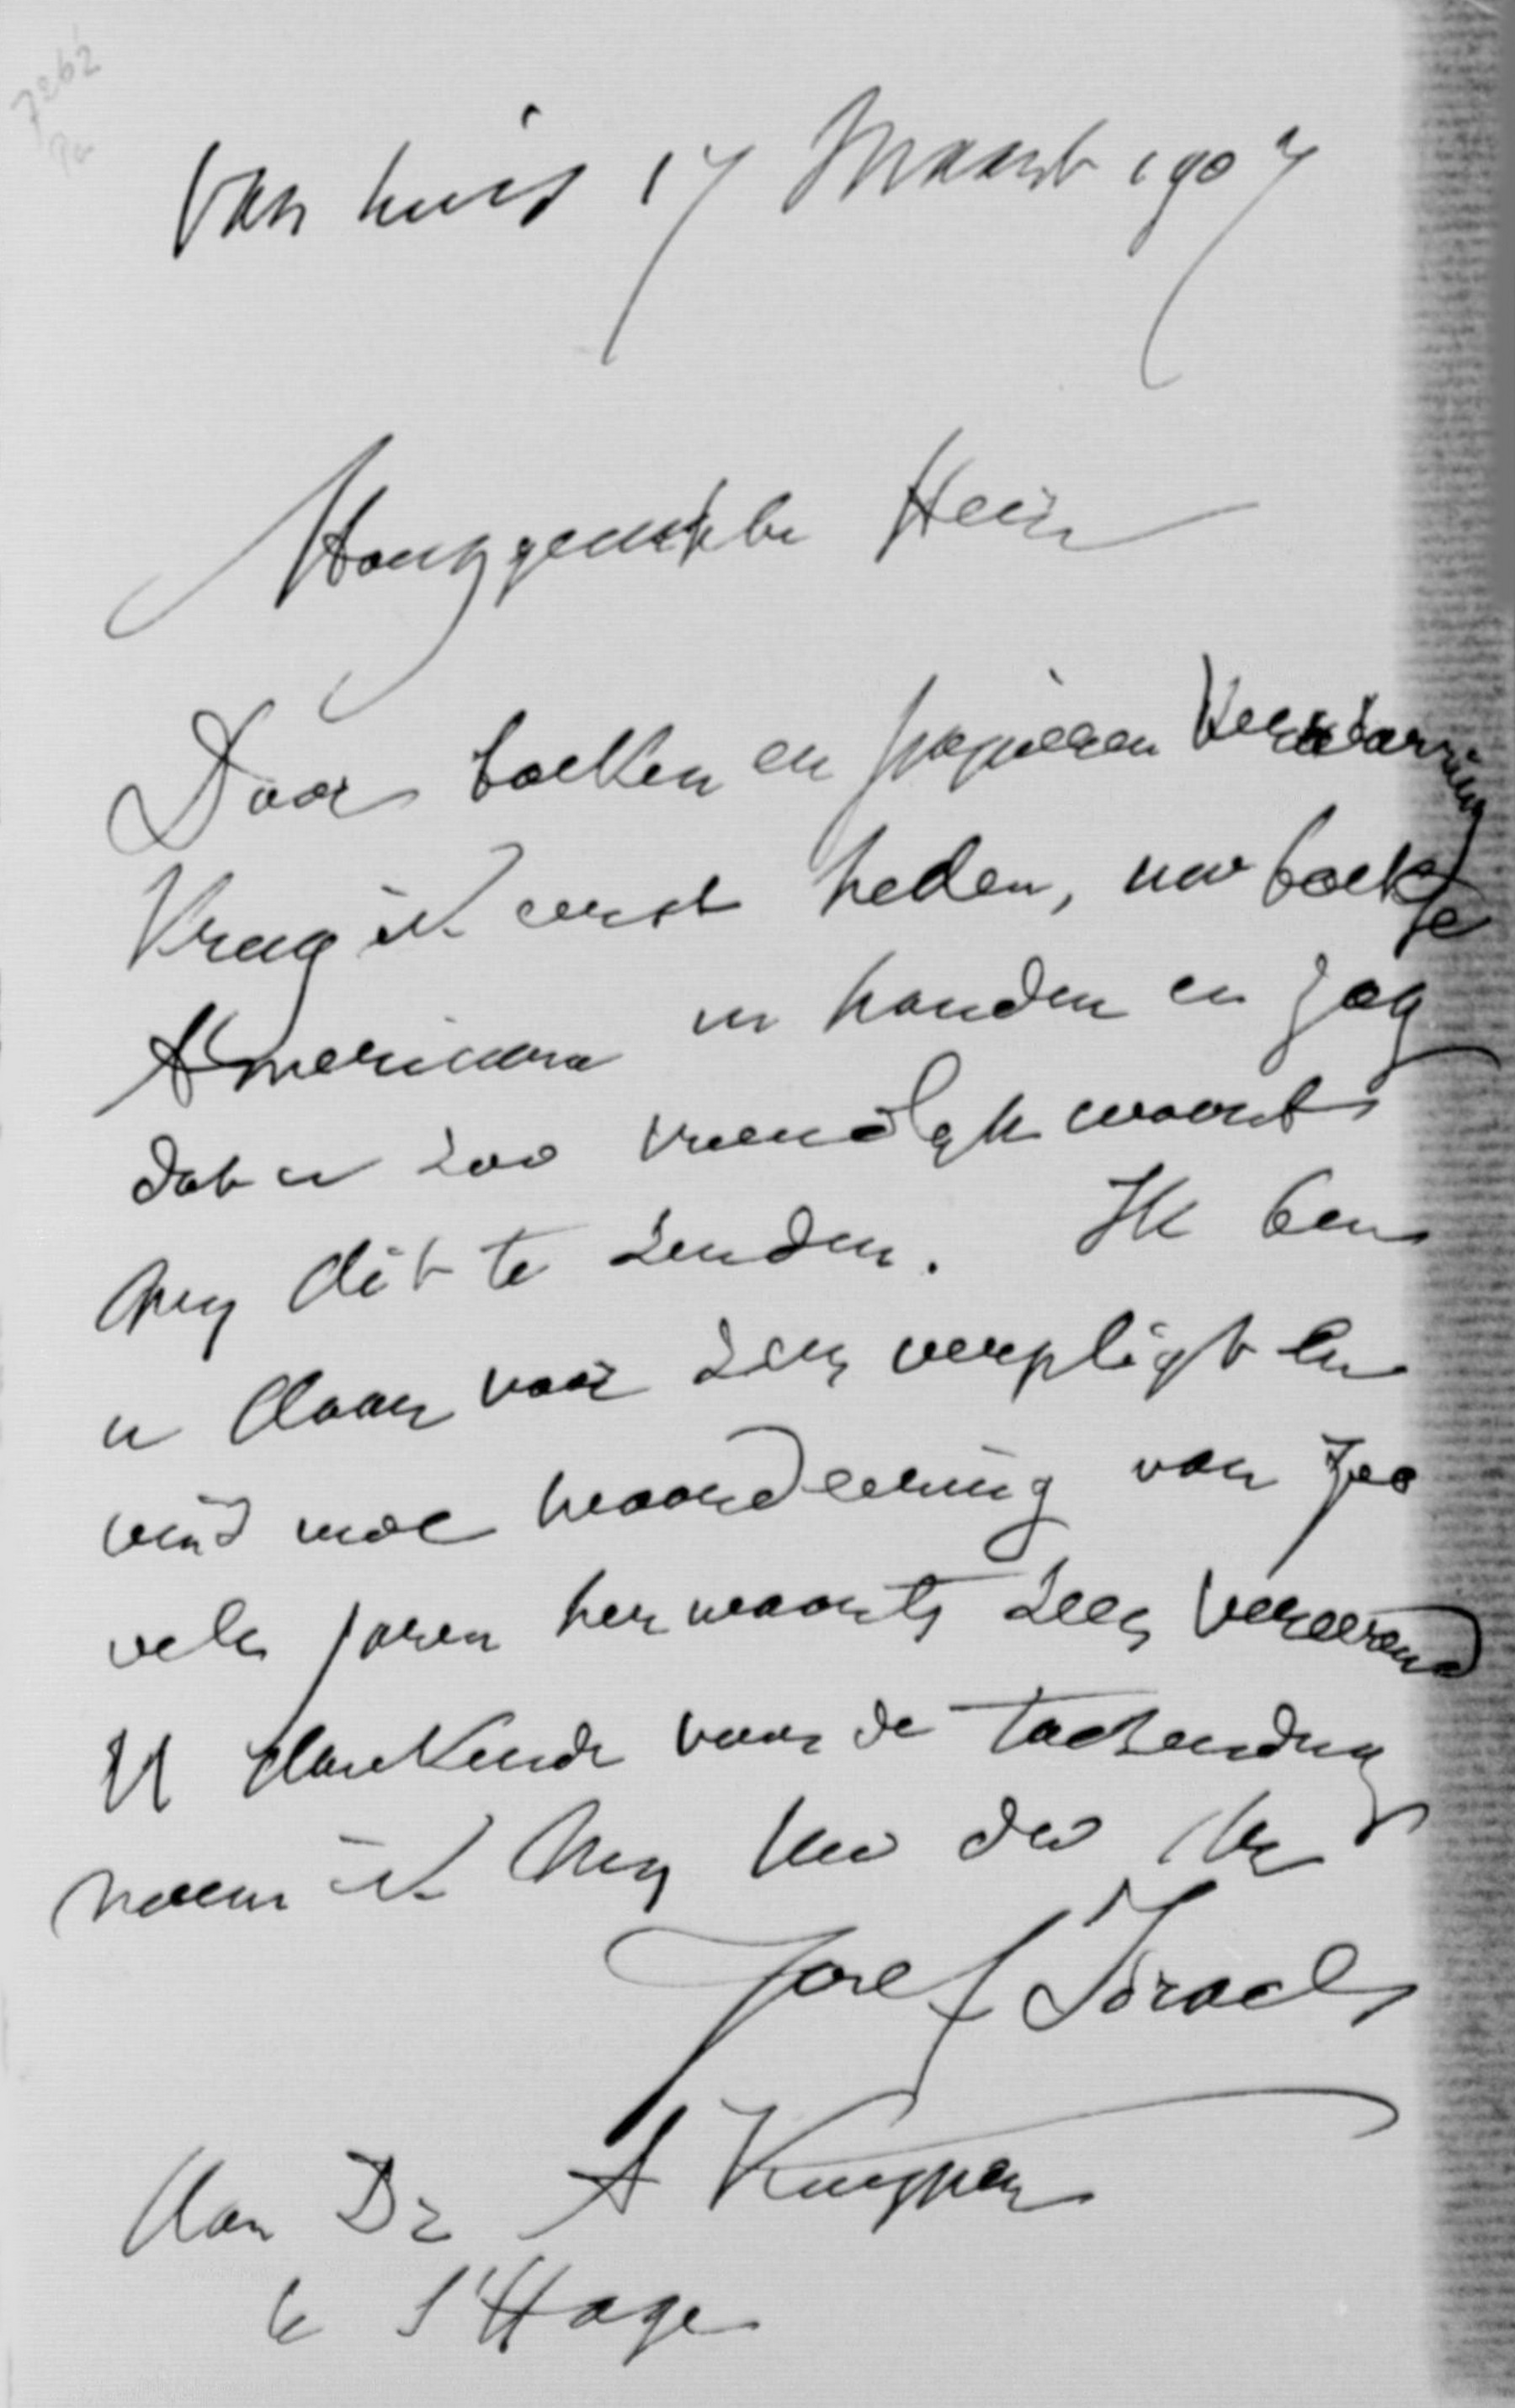 7262
Van huis 17 Maart 1907
Hooggeachte Heer
Door boeken en papieren Verwarring
Kreeg ik eerst heden, uw boekje
Americana in handen en zag
dat u zoo vriendelyk waart
my dit te zenden. Ik ben
u daar voor zeer verpligt en
vind uwe waardeering van zoo
vele jaren herwaarts zeer vereerend
U dankende voor de toezending
noem ik my Uw dw dr
Jozef Israels
Aan Dr A Kuyper
te s'Hage